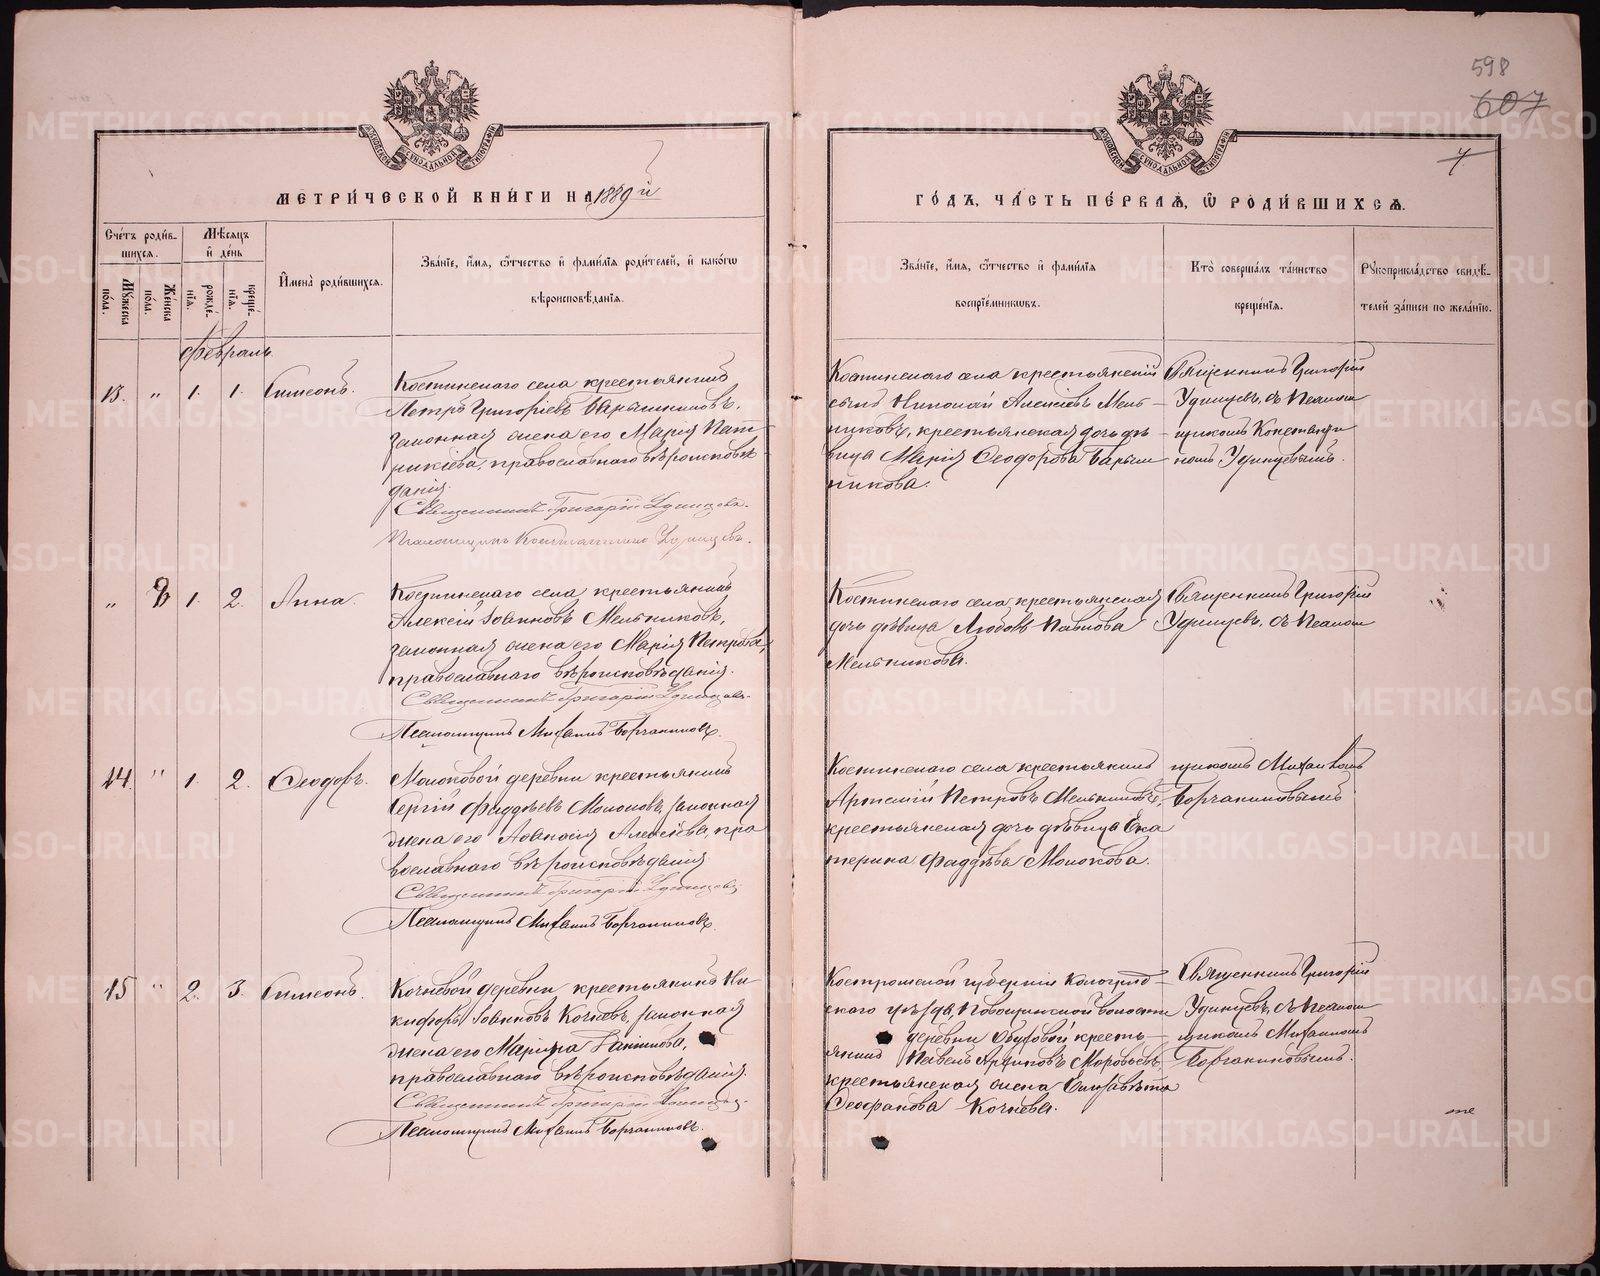 598
607
4
МОСКОВСКОЙ СУНОДАЛЬНОЙ ТИПОГРАФІИ
МОСКОВСКОЙ СУНОДАЛЬНОЙ ТИПОГРАФІИ
МЕТРИ́ЧЕСКОЙ КНИ́ГИ НА 1889 й
ГО́ДЪ, ЧА́СТЬ ПЕ́РВАѦ, Ѡ РОДИ́ВШИХСѦ.
Сче́тъ роди́в-
шихсѧ.
Мѣ́сяцъ
и де́нь
Мꙋ́жеска по́ла.
Же́нска по́ла.
рожде́-
нїѧ.
креще́-
нїѧ.
И҆мена̀ роди́вшихсѧ.
Зва́нїе, и҆́мѧ, ѻ҆́тчество и҆ фами́лїѧ роди́телей, и҆ како́гѡ
вѣроисповѣ́данїѧ.
Зва́нїе, и҆́мѧ, ѻ҆́тчество и҆ фами́лїѧ
воспрїе́мникѡвъ.
Кто̀ соверша́лъ та́инство
креще́нїѧ.
Рꙋкоприкла́дство свидѣ́-
телей за́писи по жела́нїю.
Февраль
13. " 1. 1. Симеонъ.
Костинскаго села крестьянинъ
Петръ Григоріевъ Барышниковъ,
законная жена его Марія Пат-
рикіева, православнаго вѣроисповѣ-
данія.
Священникъ Григорій Удинцевъ.
Псаломщикъ Константинъ Удинцевъ.
Костинскаго села крестьянскій
сынъ Николай Алексіевъ Мель-
никовъ, крестьянская дочь дѣ-
вица Марія Ѳеодорова Барыш-
никова.
Священникъ Григорій
Удинцевъ, съ псалом-
щикомъ Константи-
номъ Удинцевымъ.
" 1. 2. Анна.
Костинскаго села крестьянинъ
Алексій Іоанновъ Мельниковъ,
законная жена его Марія Петрова,
православнаго вѣроисповѣданія.
Священникъ Григорій Удинцевъ.
Псаломщикъ Михаилъ
Костинскаго села крестьянская
дочь дѣвица Любовь Павлова
Мельникова.
Священникъ Григорій
Удинцевъ, съ псалом-
14. " 1. 2. Ѳеодоръ.
Молоковой деревни крестьянинъ
Сергій Фаддѣевъ Молоковъ, законная
жена его Алексіева, пра-
вославнаго вѣроисповѣданія
Священникъ Григорій Удинцевъ.
Псаломщикъ Михаилъ
Костинскаго села крестьянинъ
Артемій Петровъ Мельниковъ,
крестьянская дочь дѣвица Ека-
терина Фаддѣева Молокова.
щикомъ Михаиломъ
15 " 2. 3. Симеонъ.
Кочневой деревни крестьянинъ Ни-
кифоръ Іоанновъ Кочневъ, законная
жена его Марина
православнаго вѣроисповѣданія.
Священникъ Григорій Удинцевъ.
Псаломщикъ Михаилъ
Костромской губерніи Кологрив-
скаго уѣзда, волости
деревни кресть-
янинъ Павелъ
крестьянская жена Елизавета
Ѳеофанова Кочнева.
Священникъ Григорій
Удинцевъ, съ псалом-
щикомъ Михаиломъ
METRIKI.GASO-URAL.RU